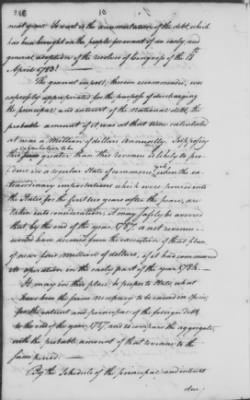 next year. So vast is the accumulation of the debt, which
has been brought on the people for want of an early, and
general adoption of the resolve of Congress of the 18th
April 1783!
The general impost, therein recommended, was
expressly appropriated for the purpose of discharging
the principal and interest of the national debt, the
probable amount of it was at that time calculated
at was a Million of dollars Annually. Supposing
this greater than this revenue is likely to pro-
duce in a regular State of commerce, when the ex-
traordinary importations which were made into
the States for the first two years after the peace, are
taken into consideration, it may safely be averred
that, by the end of the year 1787, a net revenue
would have accrued from the execution of this plan
of near four millions of dollars, if it had commenced
its operation in the early part of the year 1784.
It may in this place be proper to State, what
have been the sums necessary to be raised
for the interest and principal of the foreign debt
to the end of the year 1787, and to compare the aggregate
with the probable amount of that revenue to the
same period.
By the Schedule of the principal and interest
due